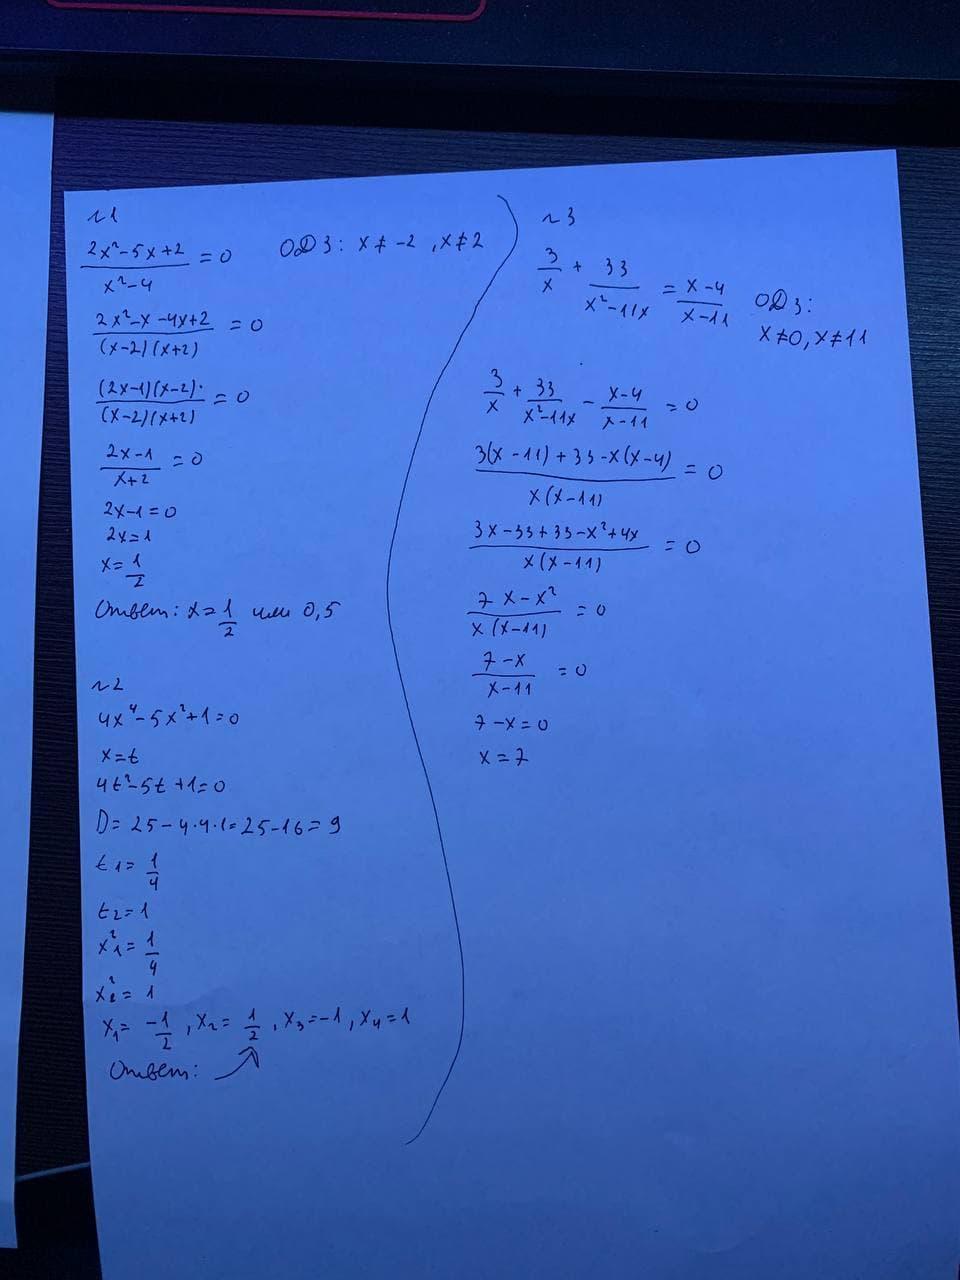 №1
2x²-5x+2 / x²-4 = 0 ОДЗ: x≠-2, x≠2
2x²-x-4x+2 / (x-2)(x+2) = 0
(2x-1)(x-2) / (x-2)(x+2) = 0
2x-1 / x+2 = 0
2x-1=0
2x=1
x=1/2
Ответ: x=1/2 или 0,5
№2
4x⁴-5x²+1=0
x=t
4t²-5t+1=0
D=25-4·4·1=25-16=9
t1=1/4
t2=1
x²1=1/4
x²2=1
x1=-1/2, x2=1/2, x3=-1, x4=1
Ответ:
№3
3/x + 33/x²-11x = x-4/x-11 ОДЗ:
x≠0, x≠11
3/x + 33/x²-11x - x-4/x-11 = 0
3(x-11)+33-x(x-4) / x(x-11) = 0
3x-33+33-x²+4x / x(x-11) = 0
7x-x² / x(x-11) = 0
7-x / x-11 = 0
7-x=0
x=7